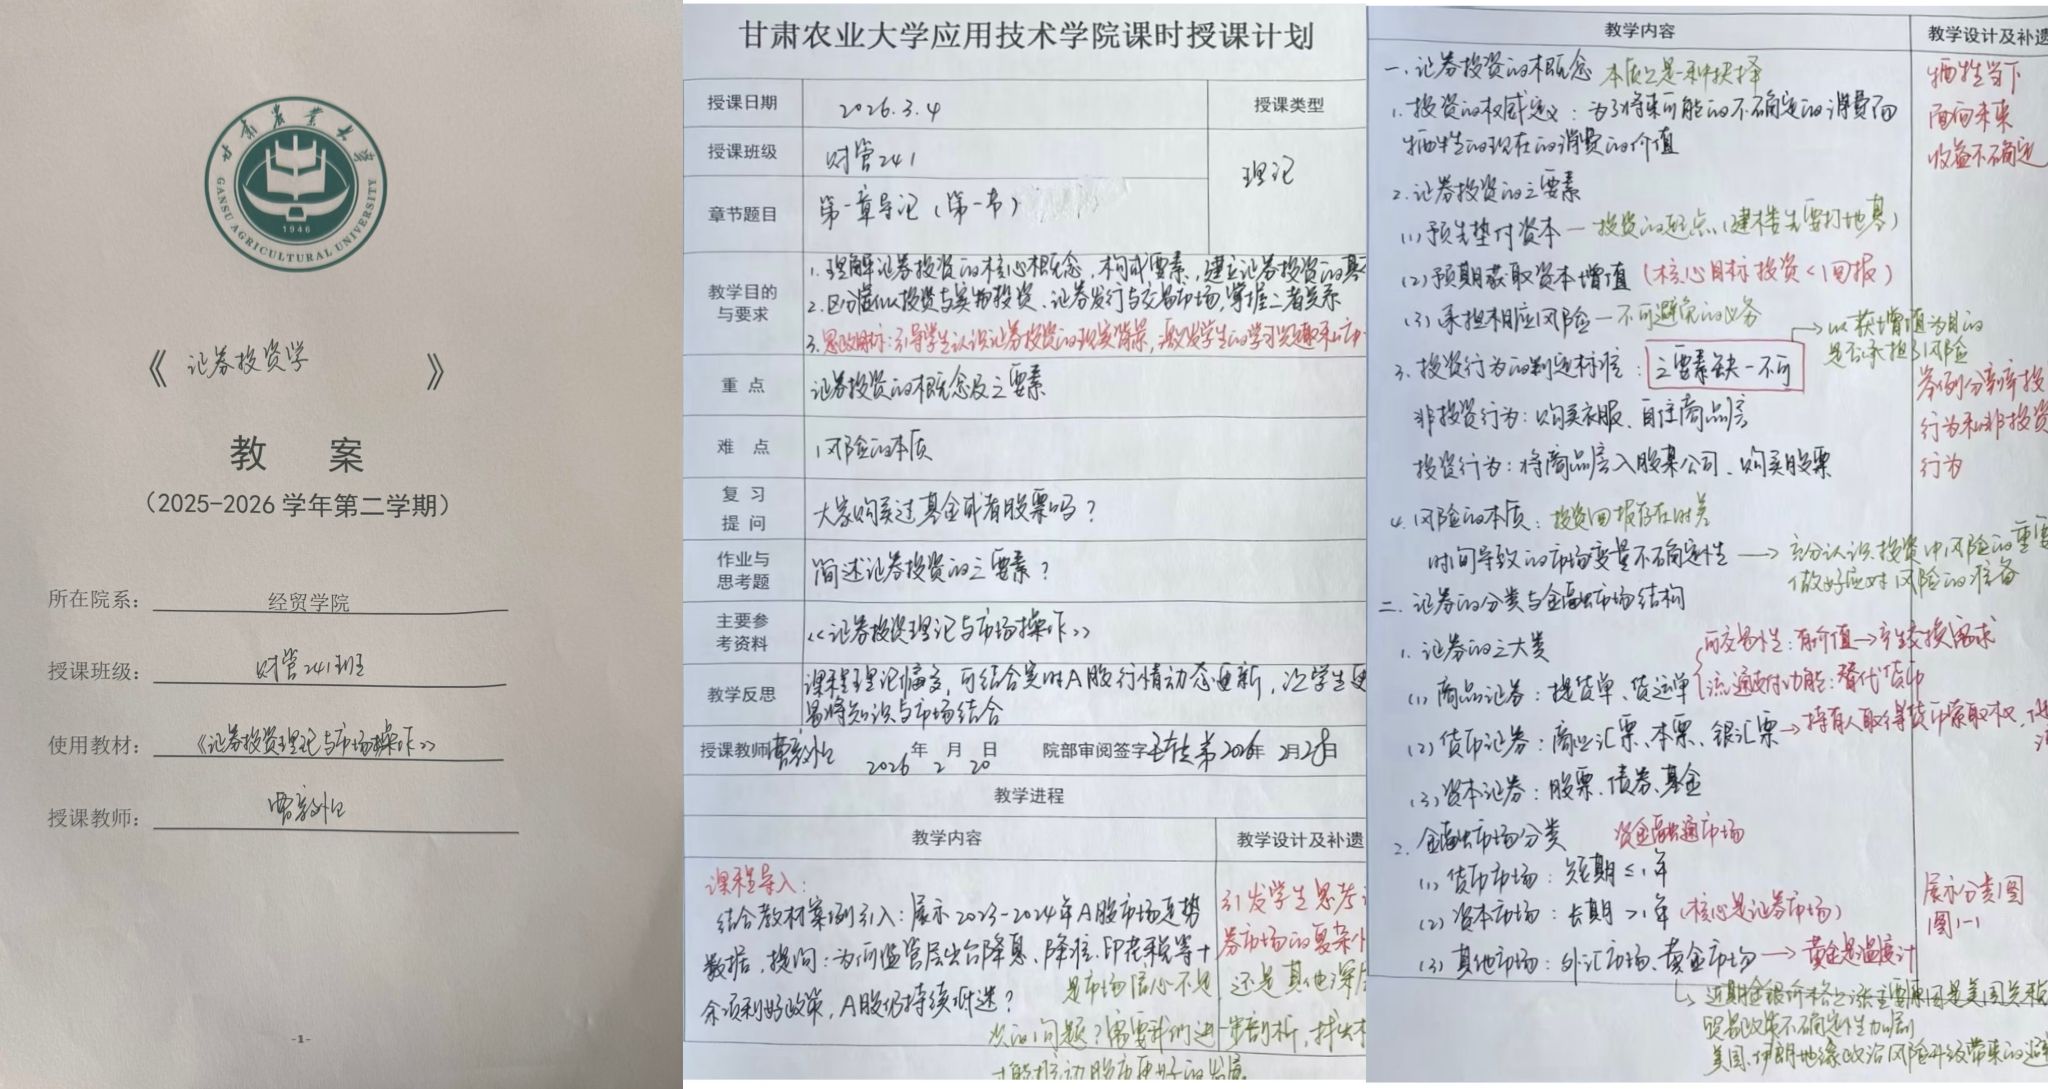 甘肃农业大学
GANSU AGRICULTURAL UNIVERSITY
1946
《 证券投资学 》
教 案
(2025-2026 学年第二学期)
所在院系: 经贸学院
授课班级: 财管241班
使用教材: 《证券投资理论与市场操作》
授课教师:
-1-
甘肃农业大学应用技术学院课时授课计划
授课日期 2026.3.4 授课类型
授课班级 财管241
理论
章节题目 第一章导论(第一节)
教学目的与要求
1. 理解证券投资的核心概念,构成要素,建立证券投资的基
2. 区分虚拟投资与实物投资、证券发行与交易市场,掌握二者关系
3. 思政目标:引导学生认识证券投资的现实背景,激发学生的学习兴趣和
重 点 证券投资的概念及三要素
难 点 风险的本质
复 习 提 问 大家购买过基金或者股票吗?
作业与思考题 简述证券投资的三要素?
主要参考资料 《证券投资理论与市场操作》
教学反思 课程理论偏多,可结合实时A股行情动态更新,让学生更
易将知识与市场结合
授课教师 2026 年 2 月 20 日 院部审阅签字 2026年 2月28日
教学进程
教学内容 教学设计及补遗
课程导入:
结合教材案例引入:展示2023-2024年A股市场走势
数据,提问:为何监管层出台降息、降准、印花税等十
余项利好政策,A股仍持续低迷?
引发学生思考
券市场的复杂
是市场信心不足 还是其他深层
次的问题?需要我们进一步剖析,找出
才能推动股市更好的发展
教学内容 教学设计及补遗
一. 证券投资的概念 本质上是一种抉择
1. 投资的权威定义:为了将来可能的不确定的消费而
牺牲的现在的消费的价值
牺牲当下
面向未来
收益不确定
2. 证券投资的三要素
(1) 预先垫付资本 — 投资的起点(建楼先要打地基)
(2) 预期获取资本增值 (核心目标 投资<回报)
(3) 承担相应风险 — 不可避免的义务
3. 投资行为的判定标准: 三要素缺一不可
→ 以获增值为目的
是否承担了风险
非投资行为:购买衣服、自住商品房
投资行为:将商品房入股某公司、购买股票
举例分析投
行为和非投资
行为
4. 风险的本质:投资回报存在时差
时间导致的市场变量不确定性 → 充分认识投资中风险的重要
做好应对风险的准备
二. 证券的分类与金融市场结构
1. 证券的三大类
(1) 商品证券:提货单、货运单
可交易性:有价值→产生交换需求
流通支付功能:替代货币
(2) 货币证券:商业汇票、本票、银汇票 → 持有人取得货币索取权
(3) 资本证券:股票、债券、基金
2. 金融市场分类 资金融通市场
(1) 货币市场:短期≤1年
(2) 资本市场:长期>1年 (核心是证券市场)
(3) 其他市场:外汇市场、黄金市场 → 黄金是温度计
展示分类图
图1-1
近期金银价格上涨主要原因是美国关税
贸易政策不确定性加剧
美国、伊朗地缘政治风险升级带来的避